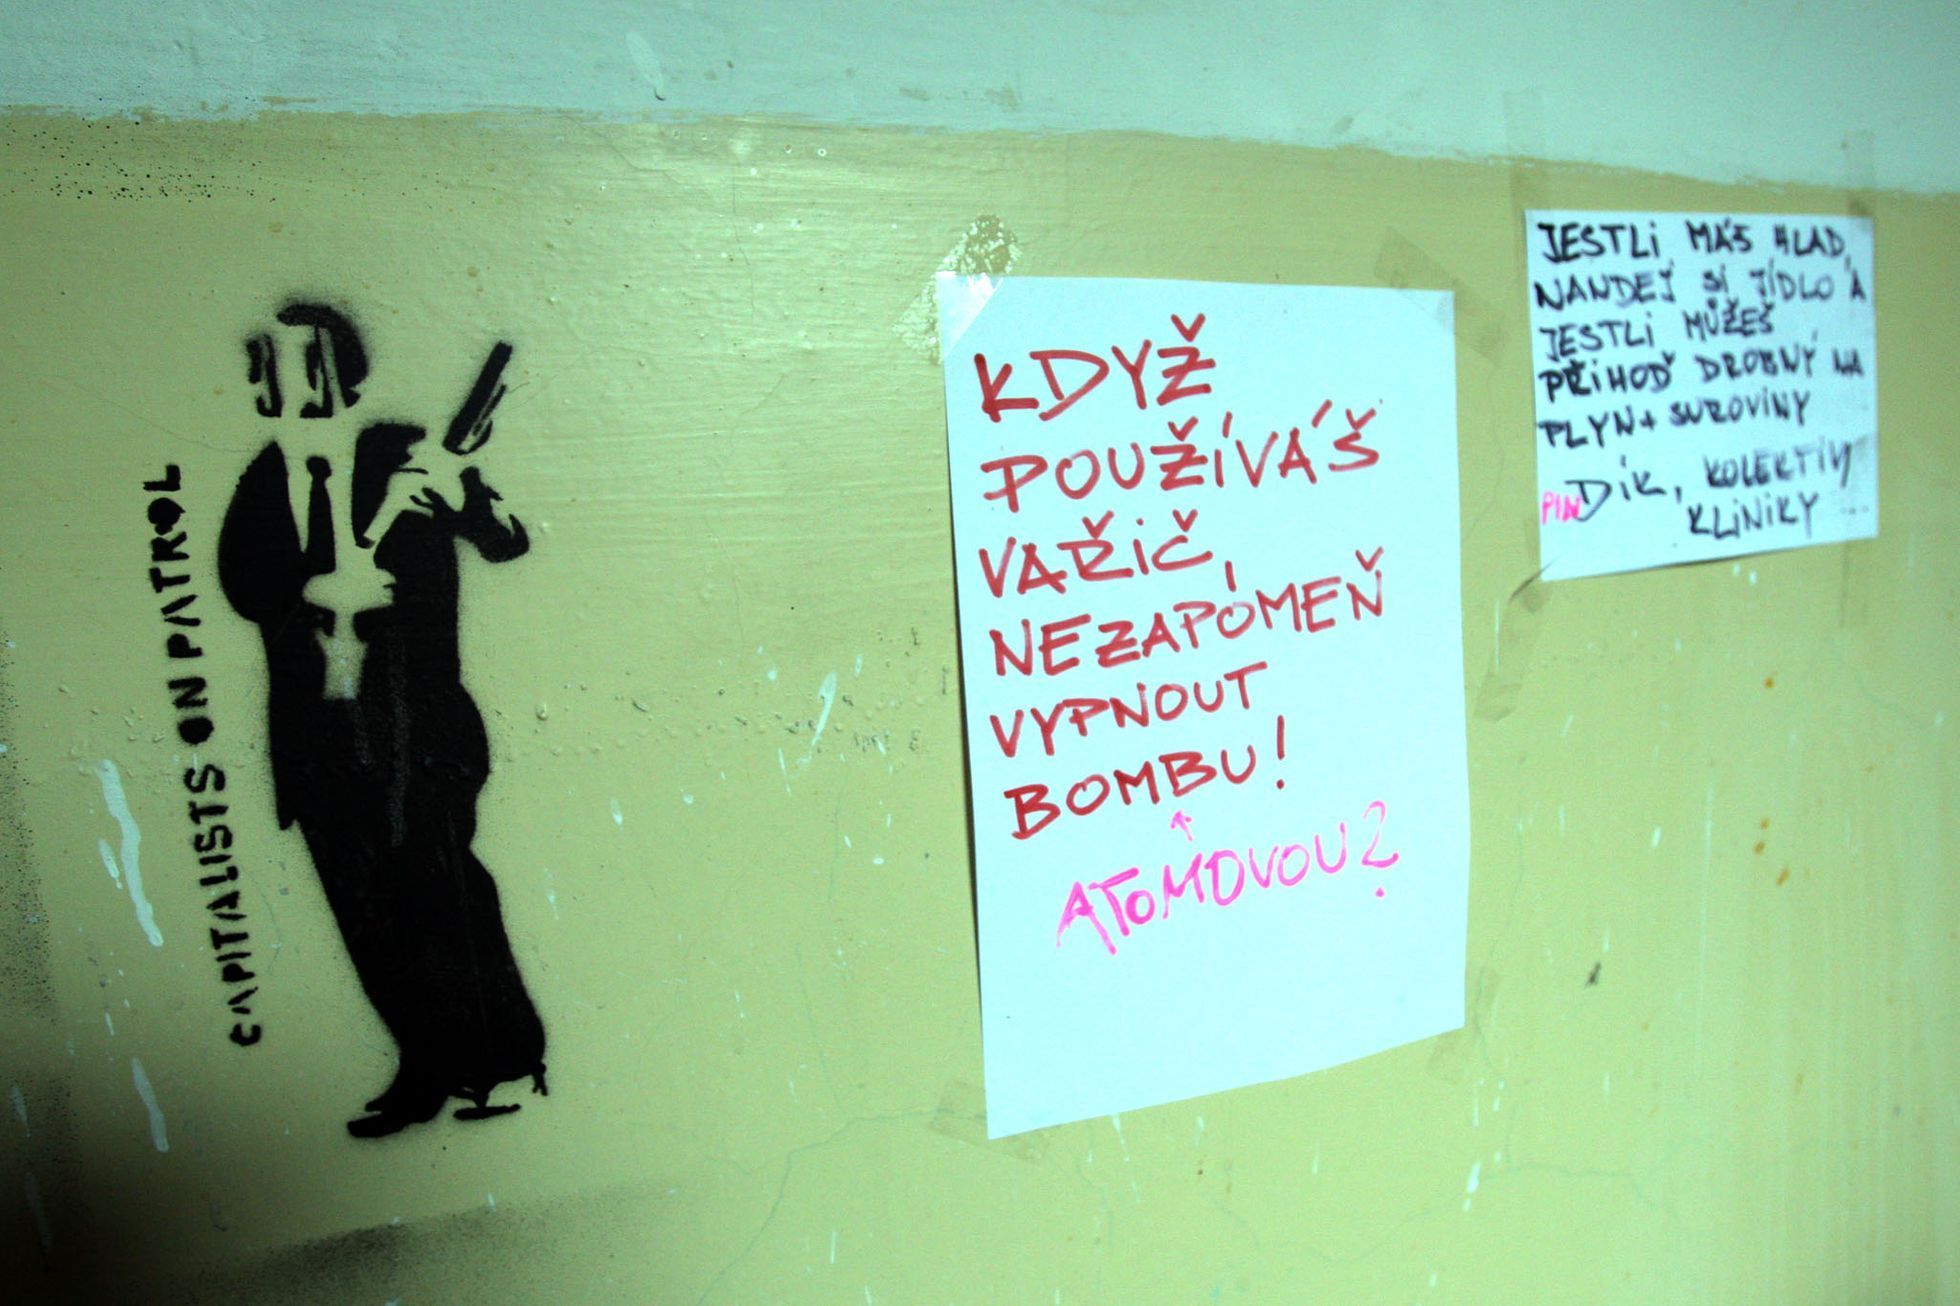 CAPITALISTS ON PATROL
KDYŽ
POUŽÍVÁŠ
VAŘIČ,
NEZAPOMEŇ
VYPNOUT
BOMBU!
ATOMOVOU?
JESTLI MÁŠ HLAD,
NANDEJ SI JÍDLO A
JESTLI MŮŽEŠ
PŘIHOĎ DROBNÝ NA
PLYN + SUROVINY
DÍK, KOLEKTIV
KLINIKY